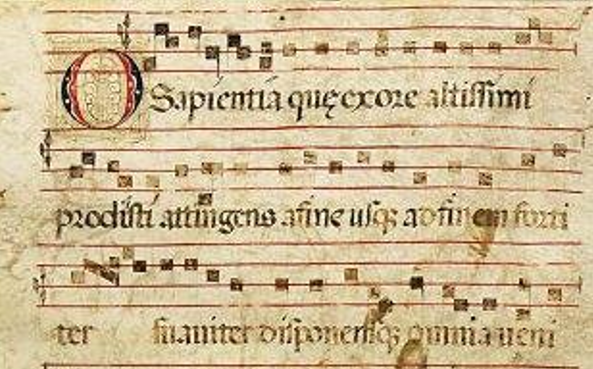 O Sapientia quę exore altissimi
prodisti attingens afine usqꝫ adfinem forti
ter suauiter disponensqꝫ omnia ueni